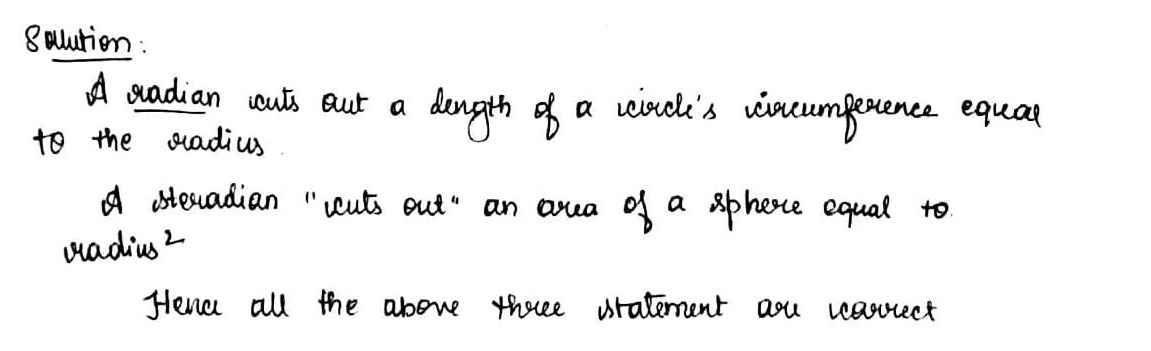 Solution:
A radian cuts out a length of a circle's circumference equal
to the radius.
A steradian "cuts out" an area of a sphere equal to
radius²
Hence all the above three statement are correct